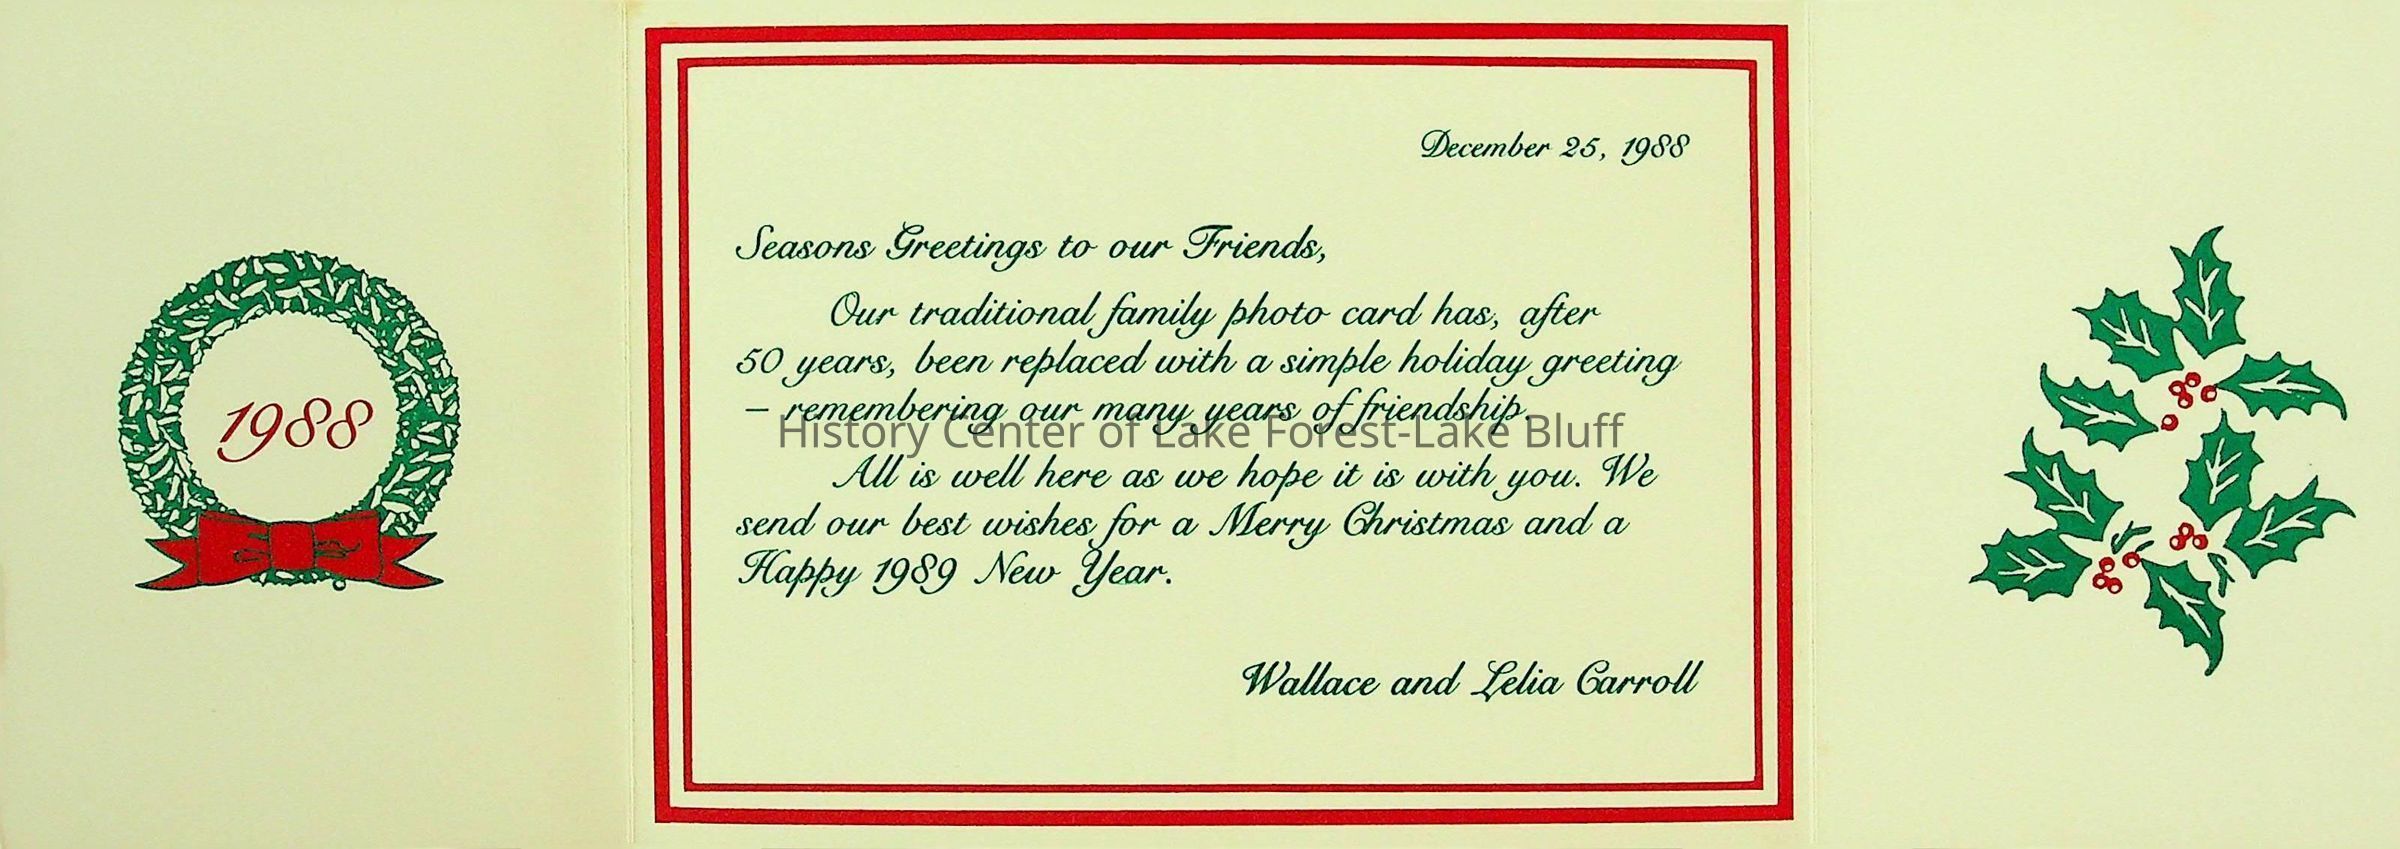 1988
December 25, 1988
Seasons Greetings to our Friends,
Our traditional family photo card has, after
50 years, been replaced with a simple holiday greeting
– remembering our many years of friendship.
History Center of Lake Forest-Lake Bluff
All is well here as we hope it is with you. We
send our best wishes for a Merry Christmas and a
Happy 1989 New Year.
Wallace and Lelia Carroll